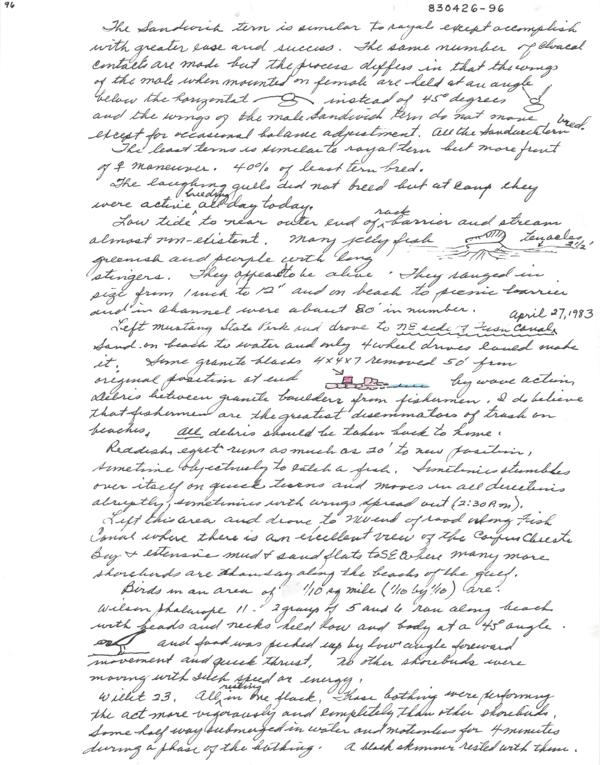 96
830426-96
The Sandwich tern is similar to royal except accomplish
with greater ease and success. The same number of cloacal
contacts are made but the process differs in that the wings
of the male when mounted on female are held at an angle
below the horizontal instead of 45° degrees
and the wings of the male Sandwich tern do not move
except for occasional balance adjustment. All the Sandwich tern bred.
The least terns is similar to royal tern but more front
of ♀ maneuver. 40% of least tern bred.
The laughing gulls did not breed but at camp they
were active breeding all day today.
Low tide to near outer end of rock barrier and stream
almost non-existent. Many jelly fish tentacles 2½'
greenish and purple with long
stingers. They appeared to be alive. They ranged in
size from 1 inch to 12" and on beach to picnic barrier
and in channel were about 80 in number.
April 27, 1983
Left Mustang State Park and drove to NE side of Fish Canal.
Sand on beach to water and only 4 wheel drives could make
it. Some granite blocks 4x4x7 removed 50' from
original position at end by wave action.
Debris between granite boulders from fishermen. I do believe
that fishermen are the greatest disseminators of trash on
beaches. All debris should be taken back to home.
Reddish egret runs as much as 20' to new position,
sometime objectively to catch a fish. Sometimes stumbles
over itself on quick turns and moves in all directions
abruptly, sometimes with wings spread out (2:30 P.M.).
Left this area and drove to NW end of road along Fish
Canal where there is an excellent view of the Corpus Christi
Bay & extensive mud & sand flats to SE where many more
shorebirds are than along the beachs of the gulf.
Birds in an area of 1/10 sq mile (1/10 by 1/10) are:
Wilson Phalarope 11. - 2 groups of 5 and 6 ran along beach
with heads and necks held low and body at a 45° angle.
and food was picked up by low angle foreward
movement and quick thrust. No other shorebirds were
moving with such speed or energy.
Willet 23. All resting in one flock. Those bathing were performing
the act more vigorously and completely than other shorebirds.
Some half way submerged in water and motionless for 4 minutes
during a phase of the bathing. A black skimmer rested with them.